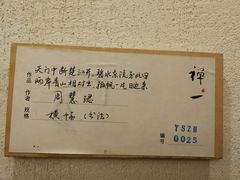 天门中断楚江开，碧水东流至此回
两岸青山相对出，孤帆一片日边来
作品
作者 周慧珺
规格 横幅（书法）
禅一
编号
YSZH
0025